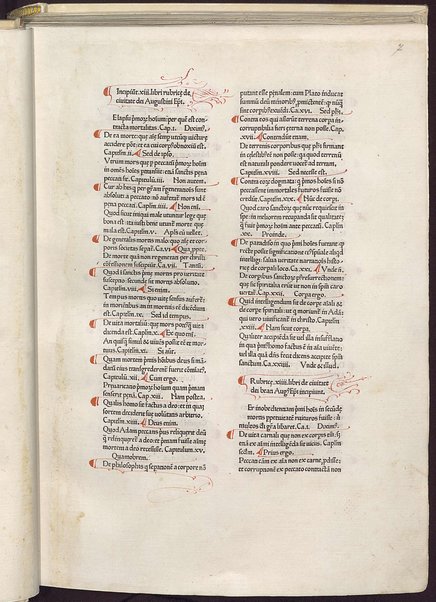 2
Incipiũt .xiii. libri rubricę de
ciuitate dei Augustini Epĩ.
E lapsu p̃moꝝ hoĩum per quẽ est cõ
tracta mortalitas. Cap .i. Diximꝰ.
De ea morte: quę aĩę semp uictuę utcũqꝫ
accidere põt: et ea cui corpꝰ obnoxiũ est.
Capitlm .ii. Sed de ipso.
Verum mors quę p peccatũ p̃moꝝ hoĩum
in oẽs hoĩes ptransiit: etiã sanctis pena
peccati sit. Capitulũ .iii. Non autem.
Cur ab his qui per gr̃am regenerationis sunt
absoluti a peccato nõ auferat mors id ẽ
pena peccati. Capitlm .iiii.
Quod sicut iniqui male utuntur lege quę
bona est: ita iusti bene utunt̃ morte quę
mala est. Capitlm .v. Apls cũ uellet.
De generali mortis malo quo aĩę et cor
poris societas separat̃. Ca .vi. Quapp̱ter.
De morte quã non regenerati pro christi
cõfessione suscipiũt. Ca .vii.
Quod ĩ sanctis p̃mę mortis pro ueritate
susceptio: secundę sit mortis absolutio.
Capitlm .viii. Si enim.
Tempus mortis quo uitę sensus aufert̃:
in morientibus an in mortuis eẽ dicẽdum
est. Capitlm .ix. Sed id tempus.
De uita mortaliũ: quę mors potiꝰ qꝫ uita
dicenda est. Caplm .x. Ex quo eni.
An quisq̃ simul et uiuẽs possit eẽ et mor
tuus. Capitlm .xi. Si aũt.
Quam mortem p̃mis hoĩibus deus si mã
datũ eius transgrederent̃ fuerit cõminatꝰ.
Capitulũ .xii. Cum ergo.
Pręuaricatio p̃moꝝ hoĩum quam p̃mam
senserit penã. Cap .xiii. Nam postea.
Qualis homo sit factus a deo: et in quã
sortem deciderit suę uolũtatis arbitrio.
Capitlm .xiiii. Deus enim.
Quod Adam peccans prius reliquerit deũ
qꝫ relinqueret̃ a deo: et p̃mam fuisse aĩę
mortem a deo recessisse. Capitulum .xv.
Quamobrem.
De philosophis qui separationẽ a corpore nõ
putant esse penalem: cum Plato inducat
summũ deũ minoribꝰ p̱mictente: qꝫ nunqꝫ
sint corporibꝰ exuẽdi. Ca .xvi. Sed phĩ.
Contra eos qui asserũt terrena corpora in
corruptibilia fieri ęterna non posse. Cap.
.xvii. Contendunt etiam.
De terrenis corporibus quę phĩ firmant
in cęlestibꝰ eẽ non posse: qa quod terrenũ est
naturali pondere uocet̃ ad terram.
Capitlm .xviii. Sed necesse est.
Contra eoꝝ dogmata: qui p̃mos hoĩes si nõ
peccassent immortales futuros fuisse nõ
credũt. Capitlm .xix. Nũc de corpe.
Quod caro sanctoꝝ quę nũc requiescit in
spe: in meliorem reparanda sit qualitatẽ:
qꝫ fuit p̃moꝝ hoĩum añ peccatũ. Caplm
.xx. Proinde.
De paradiso in quo p̃mi hoĩes fuerunt: qꝫ
recte possit significatione eiꝰ spũale aliqd
intelligi: salua ueritate narrationis histo
ricę de corporali loco. Ca .xxi. Vnde ñ.
De corporibꝰ sanctoꝝ post resurrectionem:
quę sic spũalia erũt ut non in spũm caro
uertat̃. Cap .xxii. Corpora ergo.
Quid intelligendum sit de corpore aĩali &
de corpore spũali: ut qui moriunt̃ in Adã:
qui uero uiuificant̃ in christo. Caplm.
.xxiii. Nam sicut corpora.
Qualiter accipiẽda sit uel illa insufflatio
in qua p̃mus homo factꝰ ẽ in aĩa uiuẽte:
uel illa quã dñs fecit dicens accipite spm
sanctum. Ca .xxiiii. Vnde & illud.
Rubricę .xiiii. libri de ciuitate
dei beati Augꝰtini Epĩ incipiunt.
Er inobedientiam p̃mi hoĩs in secũdę
mortis ppetuitatẽ ruituros fuisse: ni
multos dĩ gr̃a liberaret. Ca .i. Diximꝰ.
De uita carnali: quę non ex corporis tãtũ sẽ
etiã ex aĩ intelligẽda sit uitiis. Caplm
secũm. Prius ergo.
Peccati cãm ex aĩa non ex carne p̱disse:
et corruptionẽ ex peccato contractã non